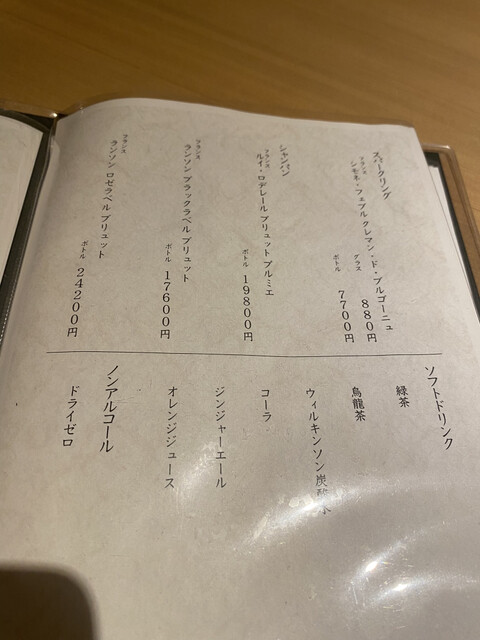 スパークリング
フランス
シモネ・フェブル クレマン・ド・ブルゴーニュ
グラス 880円
ボトル 7700円
シャンパン
フランス
ルイ・ロデレール ブリュット プルミエ
ボトル 19800円
フランス
ランソン ブラックラベル ブリュット
ボトル 17600円
フランス
ランソン ロゼラベル ブリュット
ボトル 24200円
ソフトドリンク
緑茶
烏龍茶
ウィルキンソン炭酸水
コーラ
ジンジャーエール
オレンジジュース
ノンアルコール
ドライゼロ